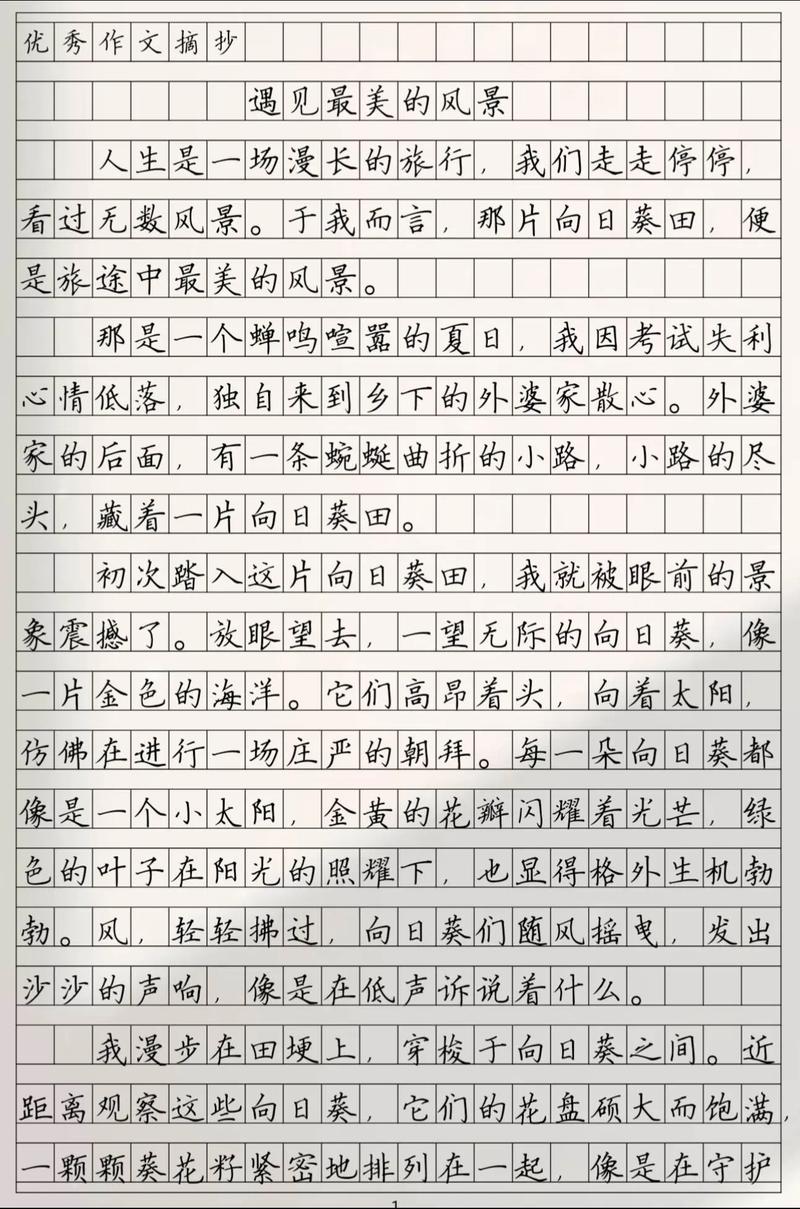 优秀作文摘抄
遇见最美的风景
人生是一场漫长的旅行，我们走走停停，
看过无数风景。于我而言，那片向日葵田，便
是旅途中最美的风景。
那是一个蝉鸣喧嚣的夏日，我因考试失利
心情低落，独自来到乡下的外婆家散心。外婆
家的后面，有一条蜿蜒曲折的小路，小路的尽
头，藏着一片向日葵田。
初次踏入这片向日葵田，我就被眼前的景
象震撼了。放眼望去，一望无际的向日葵，像
一片金色的海洋。它们高昂着头，向着太阳，
仿佛在进行一场庄严的朝拜。每一朵向日葵都
像是一个小太阳，金黄的花瓣闪耀着光芒，绿
色的叶子在阳光的照耀下，也显得格外生机勃
勃。风，轻轻拂过，向日葵们随风摇曳，发出
沙沙的声响，像是在低声诉说着什么。
我漫步在田埂上，穿梭于向日葵之间。近
距离观察这些向日葵，它们的花盘硕大而饱满，
一颗颗葵花籽紧密地排列在一起，像是在守护
1